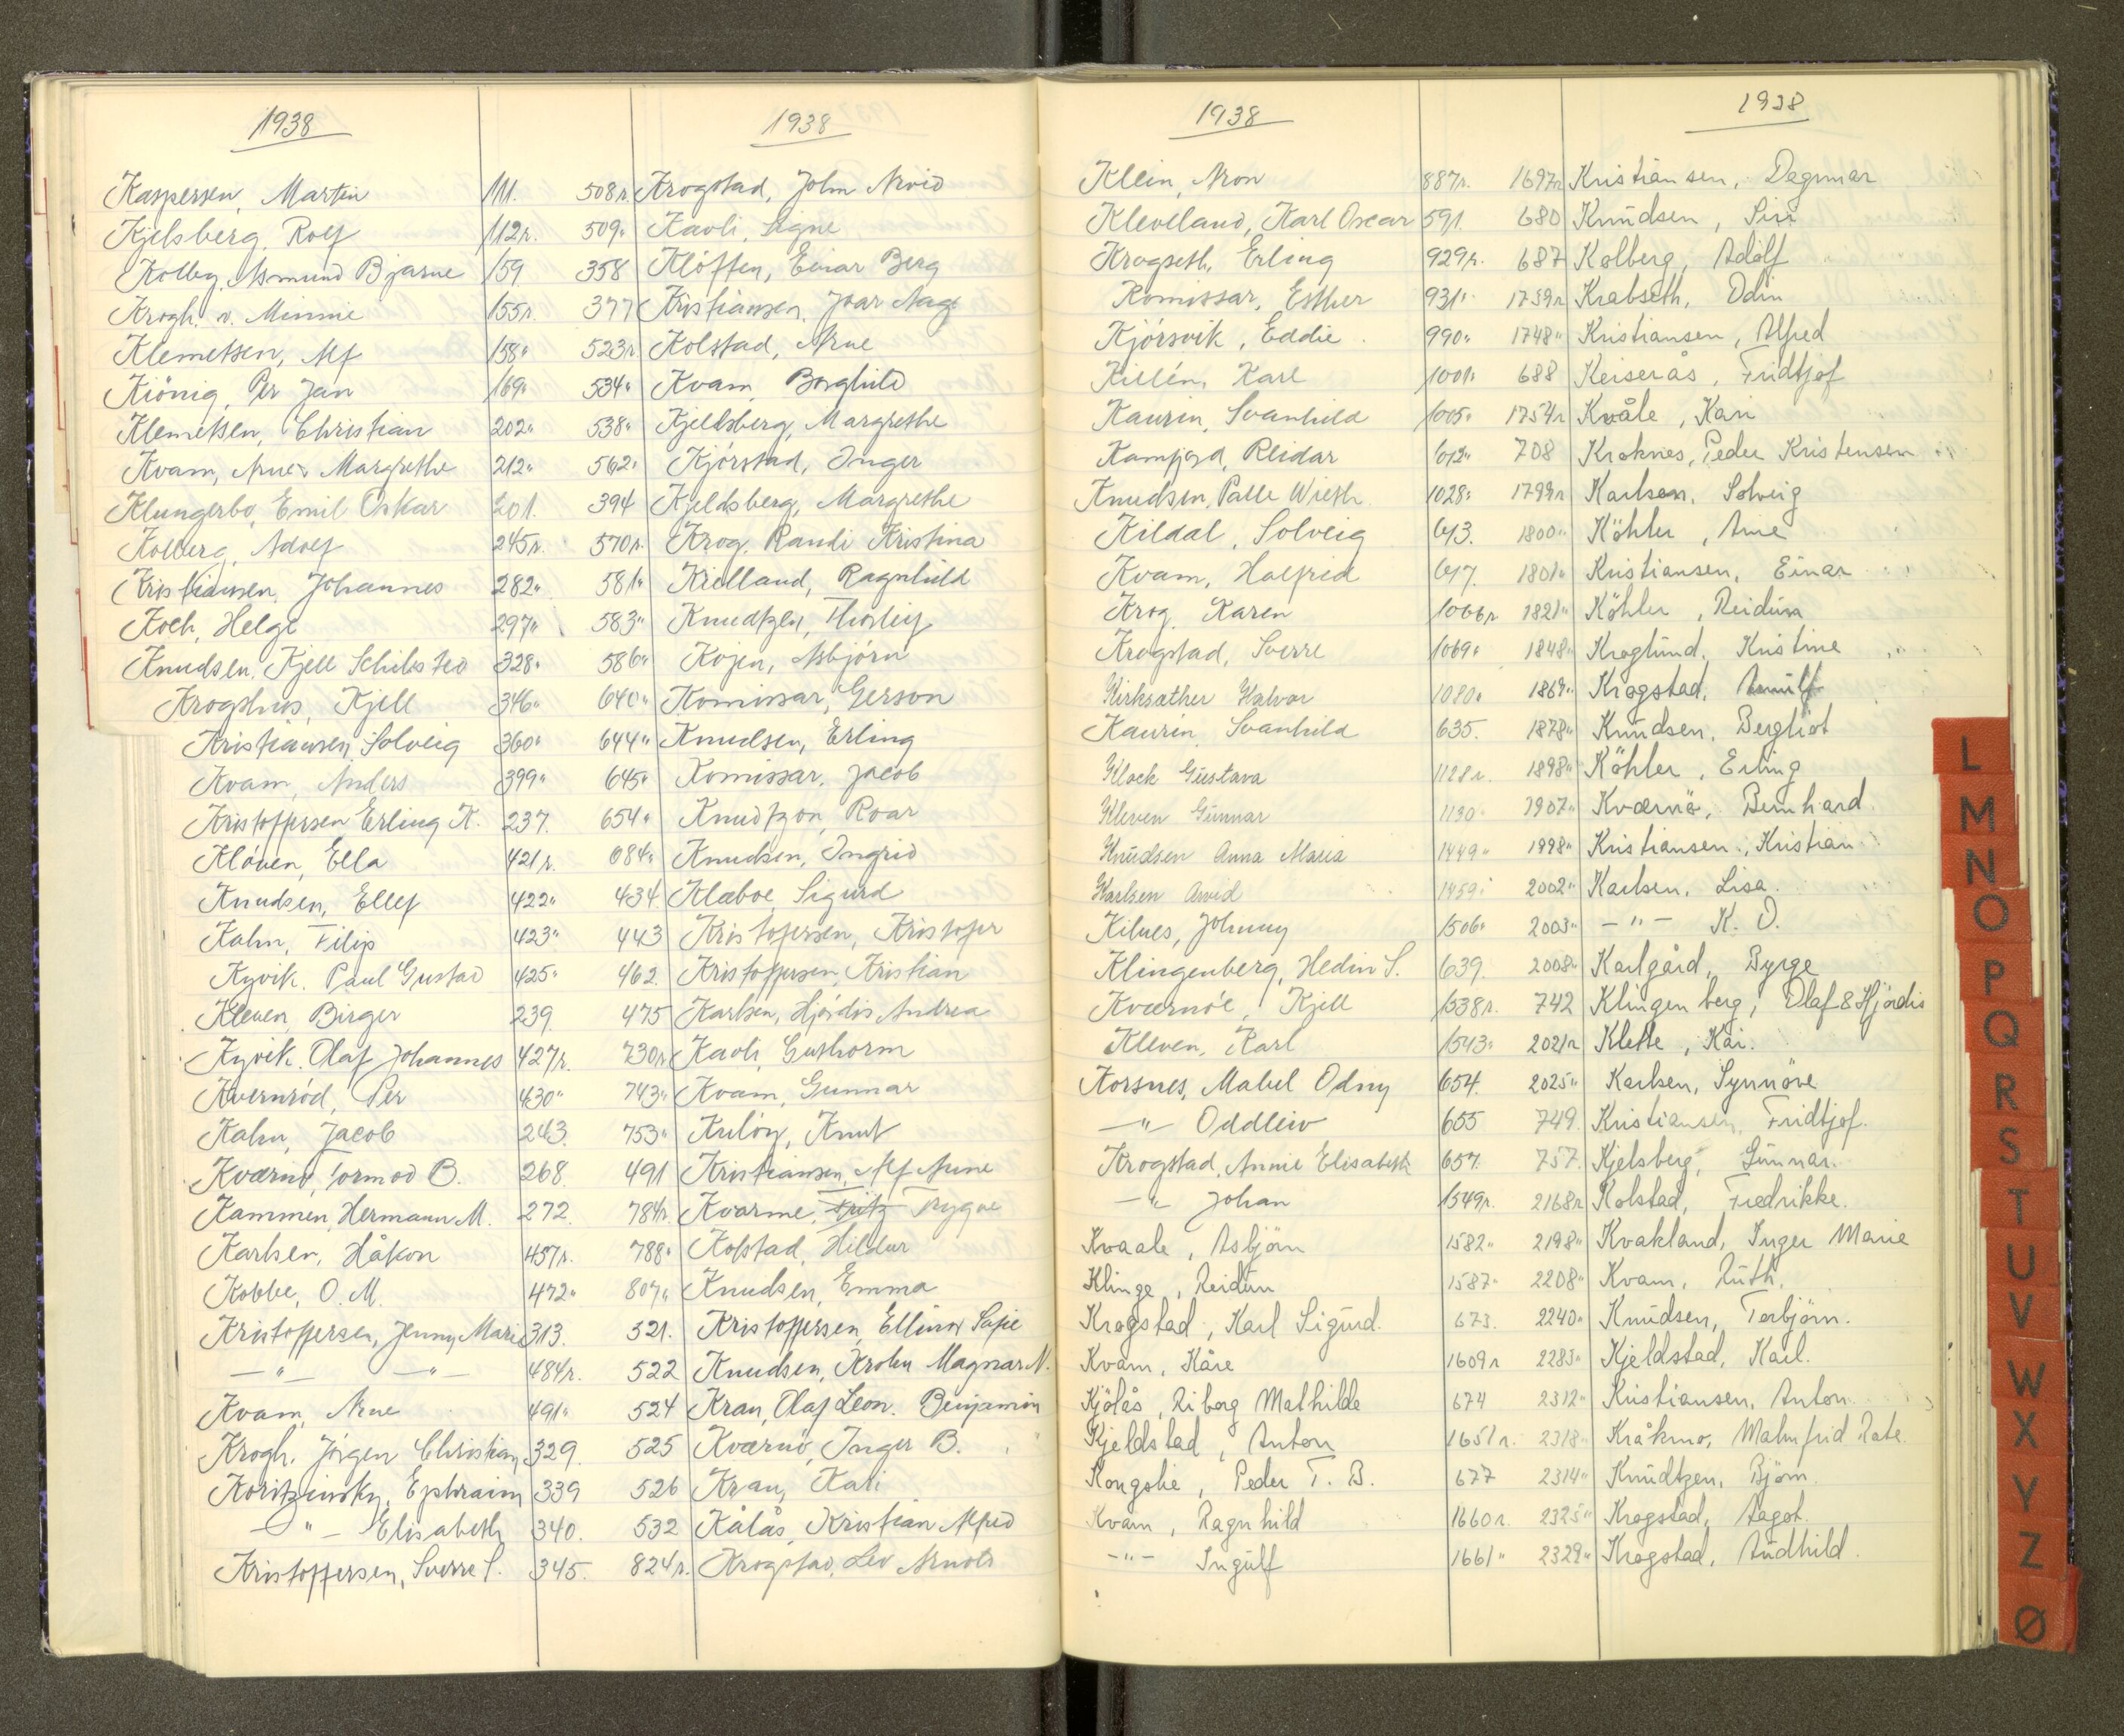 1938
Kaspersen, Martin 111.
Kjelsberg, Rolf 112r.
Kolby, Asmund Bjarne 159.
Krogh. v. Minnie 155r.
Klemetsen, Alf 158"
Kiönig, Per Jan 169"
Klemetsen, Christian 202"
Kvam, Arne & Margrethe 212"
Klungerbo, Emil Oskar 201.
Kolberg, Adolf 245r.
Kristiansen, Johannes 282"
Koch, Helge 297"
Knudsen, Kjell Schibsted 328"
Krogshus, Kjell 346"
Kristiansen, Solveig 360"
Kvam, Anders 399"
Kristoffersen Erling K. 237.
Kløven, Ella 421r.
Knudsen, Ellef 422"
Kahn, Filip 423"
Kyvik, Paul Gustav 425"
Kleven, Birger 239.
Kyvik, Olaf Johannes 427r.
Kvernrød, Per 430"
Kahn, Jacob 243.
Kværnø, Tormod B. 268.
Kammen, Hermann M. 272.
Karlsen, Håkon 457r.
Kobbe, O. M. 472"
Kristoffersen, Jenny Marie 313.
— " — — " — 484r.
Kvam, Arne 491"
Krogh, Jörgen Christian 329.
Koritzinsky, Ephraim 339
— " — Elisabeth 340.
Kristoffersen, Sverre S. 345.
1938
508r. Krogstad, John Arvid
509" Kavli, Signe
358 Kløften, Einar Berg
377 Kristiansen, Ivar Aage
523r. Kolstad, Arne
534" Kvam, Borghild
538" Kjellsberg, Margrethe
562" Kjørstad, Inger
394 Kjeldsberg, Margrethe
570r. Krog, Randi Kristina
581" Kielland, Ragnhild
583" Knudtzen, Thorleif
586" Kojen, Asbjørn
640" Komissar, Gerson
644" Knudsen, Erling
645" Komissar, Jacob
654" Knudtzon, Roar
684" Knudsen, Ingrid
434 Klæboe, Sigurd
443 Kristofersen, Kristofer
462. Kristoffersen, Kristian
475 Karlsen, Hjørdis Andrea
730r. Kavli, Guthorm
743" Kvam, Gunnar
753" Kuløy, Knut
491 Kristiansen, Alf Arne
784r. Kvarme, Fritz Trygve
788" Kolstad, Hildur
807" Knudsen, Emma
521. Kristoffersen, Ellinor Sofie
522 Knudsen, Krohn Magnar N.
524 Kran, Olaf Leon. Benjamin
525 Kværnø, Inger B.
526 Kran, Kari
532 Kålås, Kristian Alfred
824r. Krogstad, Lev Arnold
1938
Klein, Aron 887r.
Kleveland, Karl Oscar 591.
Krogseth, Erling 929r.
Komissar, Esther 931"
Kjørsvik, Eddie 990"
Killén, Karl 1001"
Kaurin, Svanhild 1005"
Kamfjord, Reidar 612"
Knudsen, Palle Wieth 1028"
Kildal, Solveig 613.
Kvam, Halfrid 617.
Krog, Karen 1066r.
Krogstad, Sverre 1069"
Kirksæther Halvor 1080"
Kaurin, Svanhild 635.
Klock Gustava 1128r.
Kleven Gunnar 1130"
Knudsen Anna Maria 1449"
Karlsen Arvid 1459"
Kilnes, Johnny 1506"
Klingenberg, Hedin S. 639.
Kværnöe, Kjell 1538r.
Kleven, Karl 1543"
Korsnes, Mabel Odny 654.
— " — Oddleiv 655
Krogstad, Annie Elisabeth 657.
— " — Johan 1549r.
Kvaale, Asbjørn 1582"
Klinge, Reidun 1587"
Krogstad, Karl Sigurd. 673.
Kvam, Kåre 1609r
Kjölås, Riborg Mathilde 674
Kjeldstad, Anton 1651r.
Kongslie, Peder T. B. 677
Kvam, Ragnhild 1660r.
— " — Ingulf 1661"
1938
1697r Kristiansen, Dagmar
680 Knudsen, Siri
687 Kolberg, Adolf
1739r Krabseth, Odin
1748" Kristiansen, Alfred
688 Keiserås, Fridtjof
1754r Kvåle, Kari
708 Kroknes, Peder Kristensen
1799r Karlsen, Solveig
1800" Köhler, Arne
1801" Kristiansen, Einar
1821" Köhler, Reidun
1848" Kroglund, Kristine
1869" Krogstad, Arnulf
1878" Knudsen, Bergliot
1898" Köhler, Erling
1907" Kværnö, Bernhard
1998" Kristiansen, Kristian
2002" Karlsen, Lisa
2003" — " — K. O.
2008" Karlgård, Byrge
742 Klingenberg, Olaf & Hjördis
2021r Klette, Kåi.
2025" Karlsen, Synnöve
749. Kristiansen, Fridtjof.
757. Kjelsberg, Gunnar.
2168r Kolstad, Fredrikke.
2198" Kvakland, Inger Marie
2208" Kvam, Ruth.
2240" Knudsen, Torbjörn.
2283" Kjeldstad, Karl.
2312" Kristiansen, Anton
2318" Kråkmo, Malmfrid Kate.
2314" Knudtzen, Björn.
2325" Krogstad, Aagot.
2329" Krogstad, Audhild.
L
M
N
O
P
Q
R
S
T
U
V
W
X
Y
Z
Ø